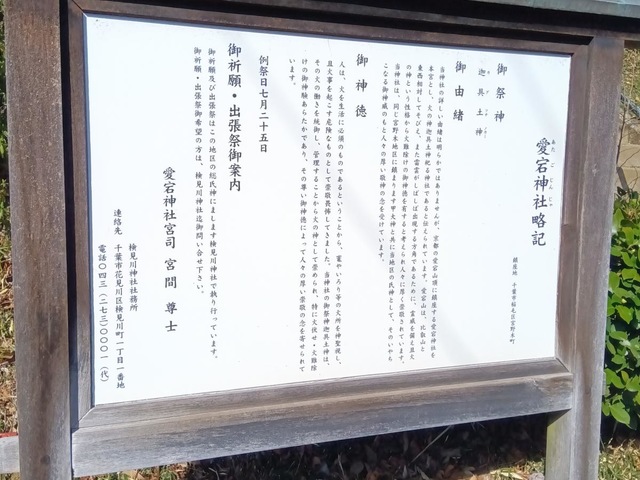 愛宕神社略記
あたごじんじゃ
鎮座地 千葉市稲毛区宮野木町
御祭神
迦具土神
御由緒
当神社の詳しい由緒は明らかではありませんが、京都の愛宕山頂に鎮座する愛宕神社を
本宮とし、火の神迦具土神を祀る神社であると伝えられています。愛宕山は、比叡山と
東西相対してそびえ、また雷雲がしばしば出現する方角であるために、霊威を備え且火
の神という性格から火難除けの御神徳を有すると考えられ人々に厚く崇敬されています。
当神社は、同じ宮野木地区に鎮まります甲大神と共に当地区の氏神として、そのいやち
こなる御神威のもと人々の厚い敬神の念を受けています。
御神徳
人は、火を生活に必須のものであるということから、竃やいろり等の火所を神聖視し、
且火事を起こす危険なものとして崇敬畏怖してきました。当神社の御祭神迦具土神は、
その火の働きを統御し、管理することから火の神として崇められ、特に火伏せ・火難除
けの御神験あらたかであり、その尊い御神徳によって人々の厚い崇敬の念を寄せられて
います。
例祭日七月二十五日
御祈願・出張祭御案内
御祈願及び出張祭はこの地区の総氏神にまします検見川神社で執り行っています。
御祈願・出張祭御希望の方は、検見川神社迄御問い合せ下さい。
愛宕神社宮司 宮間 尊士
連絡先 検見川神社社務所
千葉市花見川区検見川町一丁目一番地
電話〇四三(二七三)〇〇〇一(代)